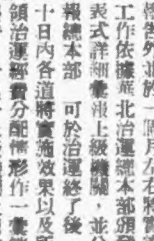 報告外並於一個月左右將實
工作依據華北治運總本部頒發
表式詳細彙報上級機關，並分
報總本部　可於治運終了後
十日內各道將實施效果以及所
領治運經費分配情形作一彙